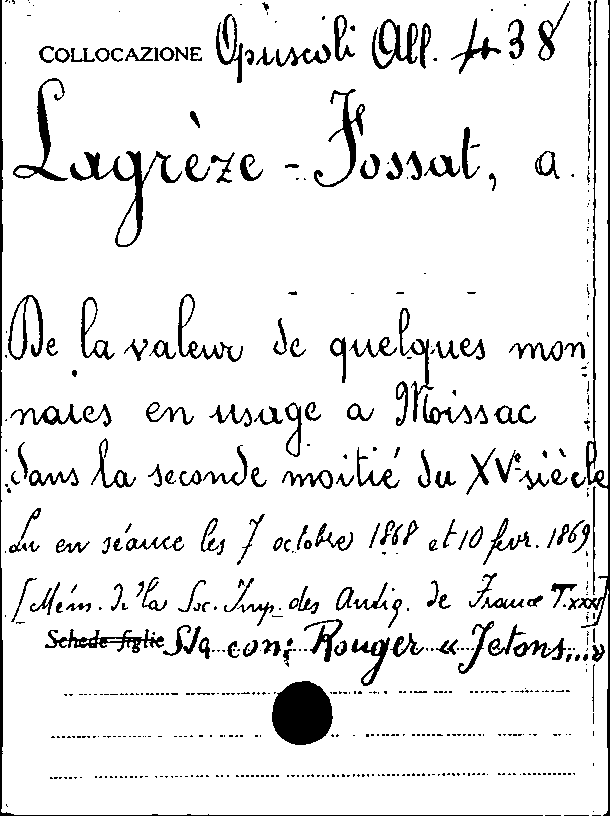 COLLOCAZIONE Opuscoli All. 438
Lagrèze - Fossat, a.
De la valeur de quelques mon
naies en usage a Moissac
dans la seconde moitié du XVe siècle
Lu en séance les 7 octobre 1868 et 10 fevr. 1869
[Mém. de la Soc. Imp. des Antiq. de France T. xxxi]
Schede figlie Sta con: Rouger « Jetons...»